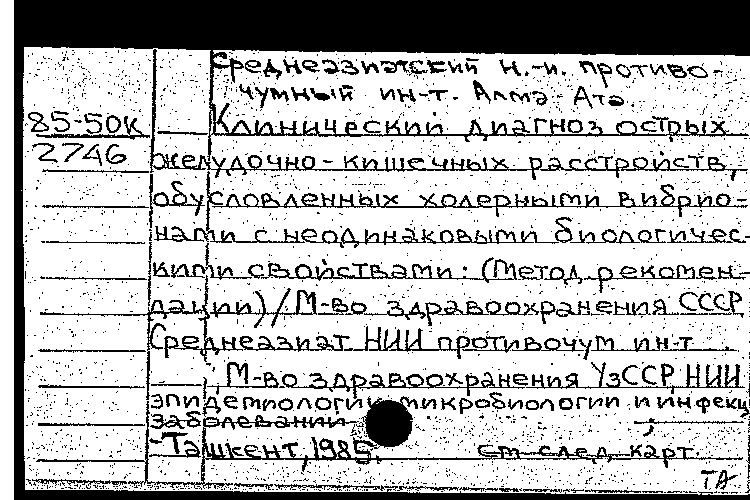 Среднеазиатский н.-и. противо-
чумный ин-т. Алма-Ата.
85-50К
2746
Клинический диагноз острых
желудочно-кишечных расстройств,
обусловленных холерными вибрио-
нами с неодинаковыми биологичес-
кими свойствами: (Метод. рекомен-
дации) / М-во здравоохранения СССР
Среднеазиат НИИ противочум ин-т.
М-во здравоохранения УзССР, НИИ
эпидемиологии, микробиологии и инфекц
заболевании ;
-Ташкент, 1985.
см след. карт.
ТА